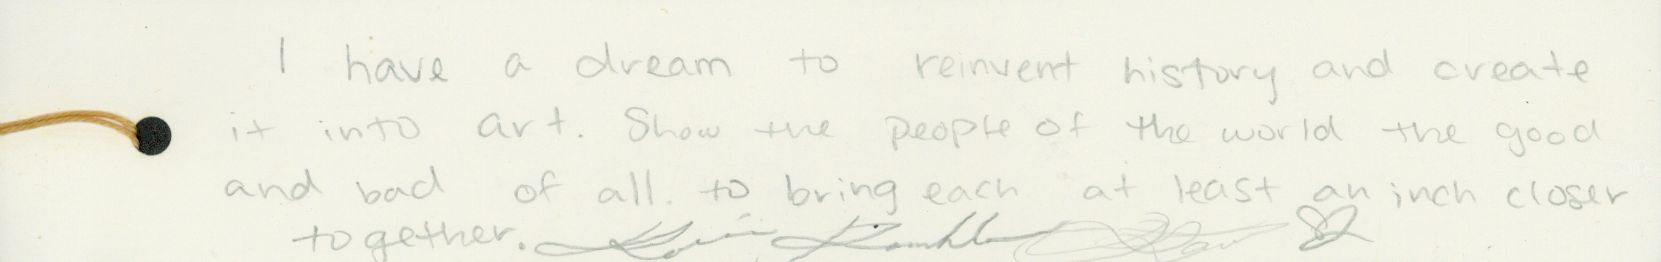 I have a dream to reinvent history and create
it into art. Show the people of the world the good
and bad of all. to bring each at least an inch closer
together.